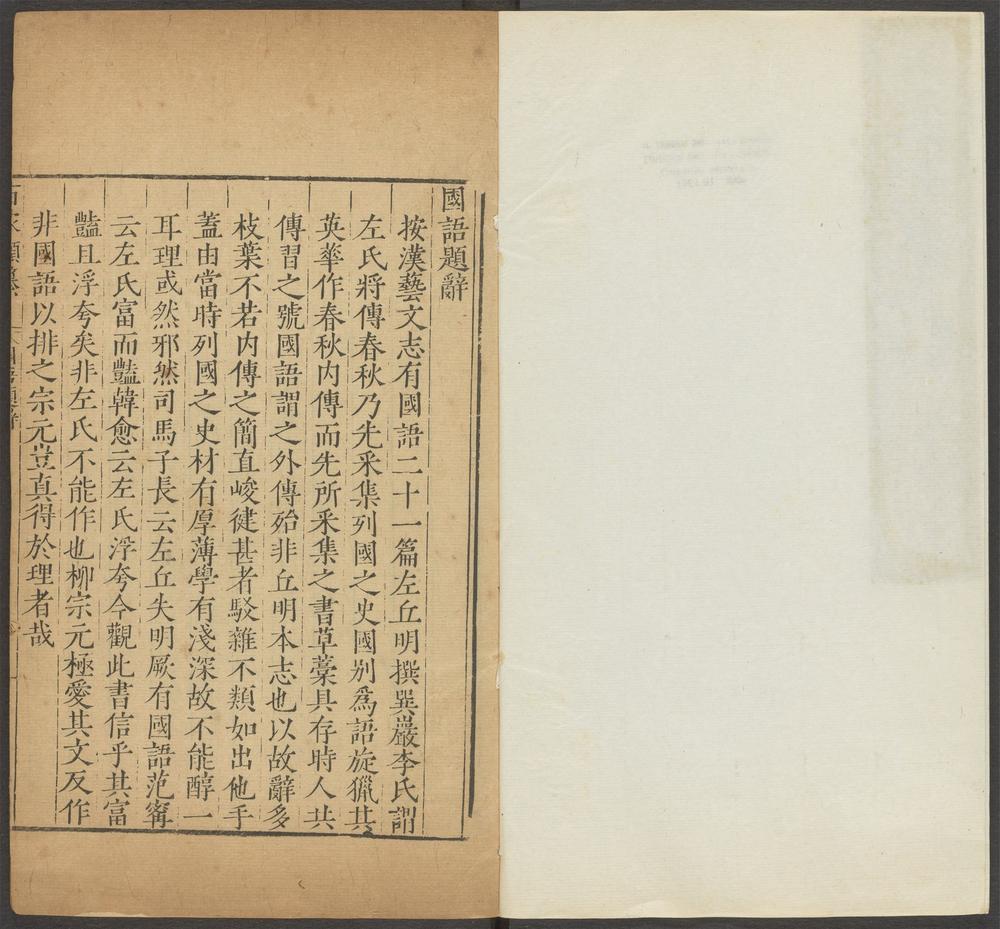 國語題辭
按漢藝文志有國語二十一篇左丘明撰巽巖李氏謂
左氏將傳春秋乃先釆集列國之史國別爲語旋獵其
英華作春秋內傳而先所釆集之書草藁具存時人共
傳習之號國語謂之外傳殆非丘明本志也以故辭多
枝葉不若內傳之簡直峻健甚者駁雜不類如出他手
蓋由當時列國之史材有厚薄學有淺深故不能醇一
耳理或然邪然司馬子長云左丘失明厥有國語范甯
云左氏富而豔韓愈云左氏浮夸今觀此書信乎其富
豔且浮夸矣非左氏不能作也柳宗元極愛其文反作
非國語以排之宗元豈真得於理者哉